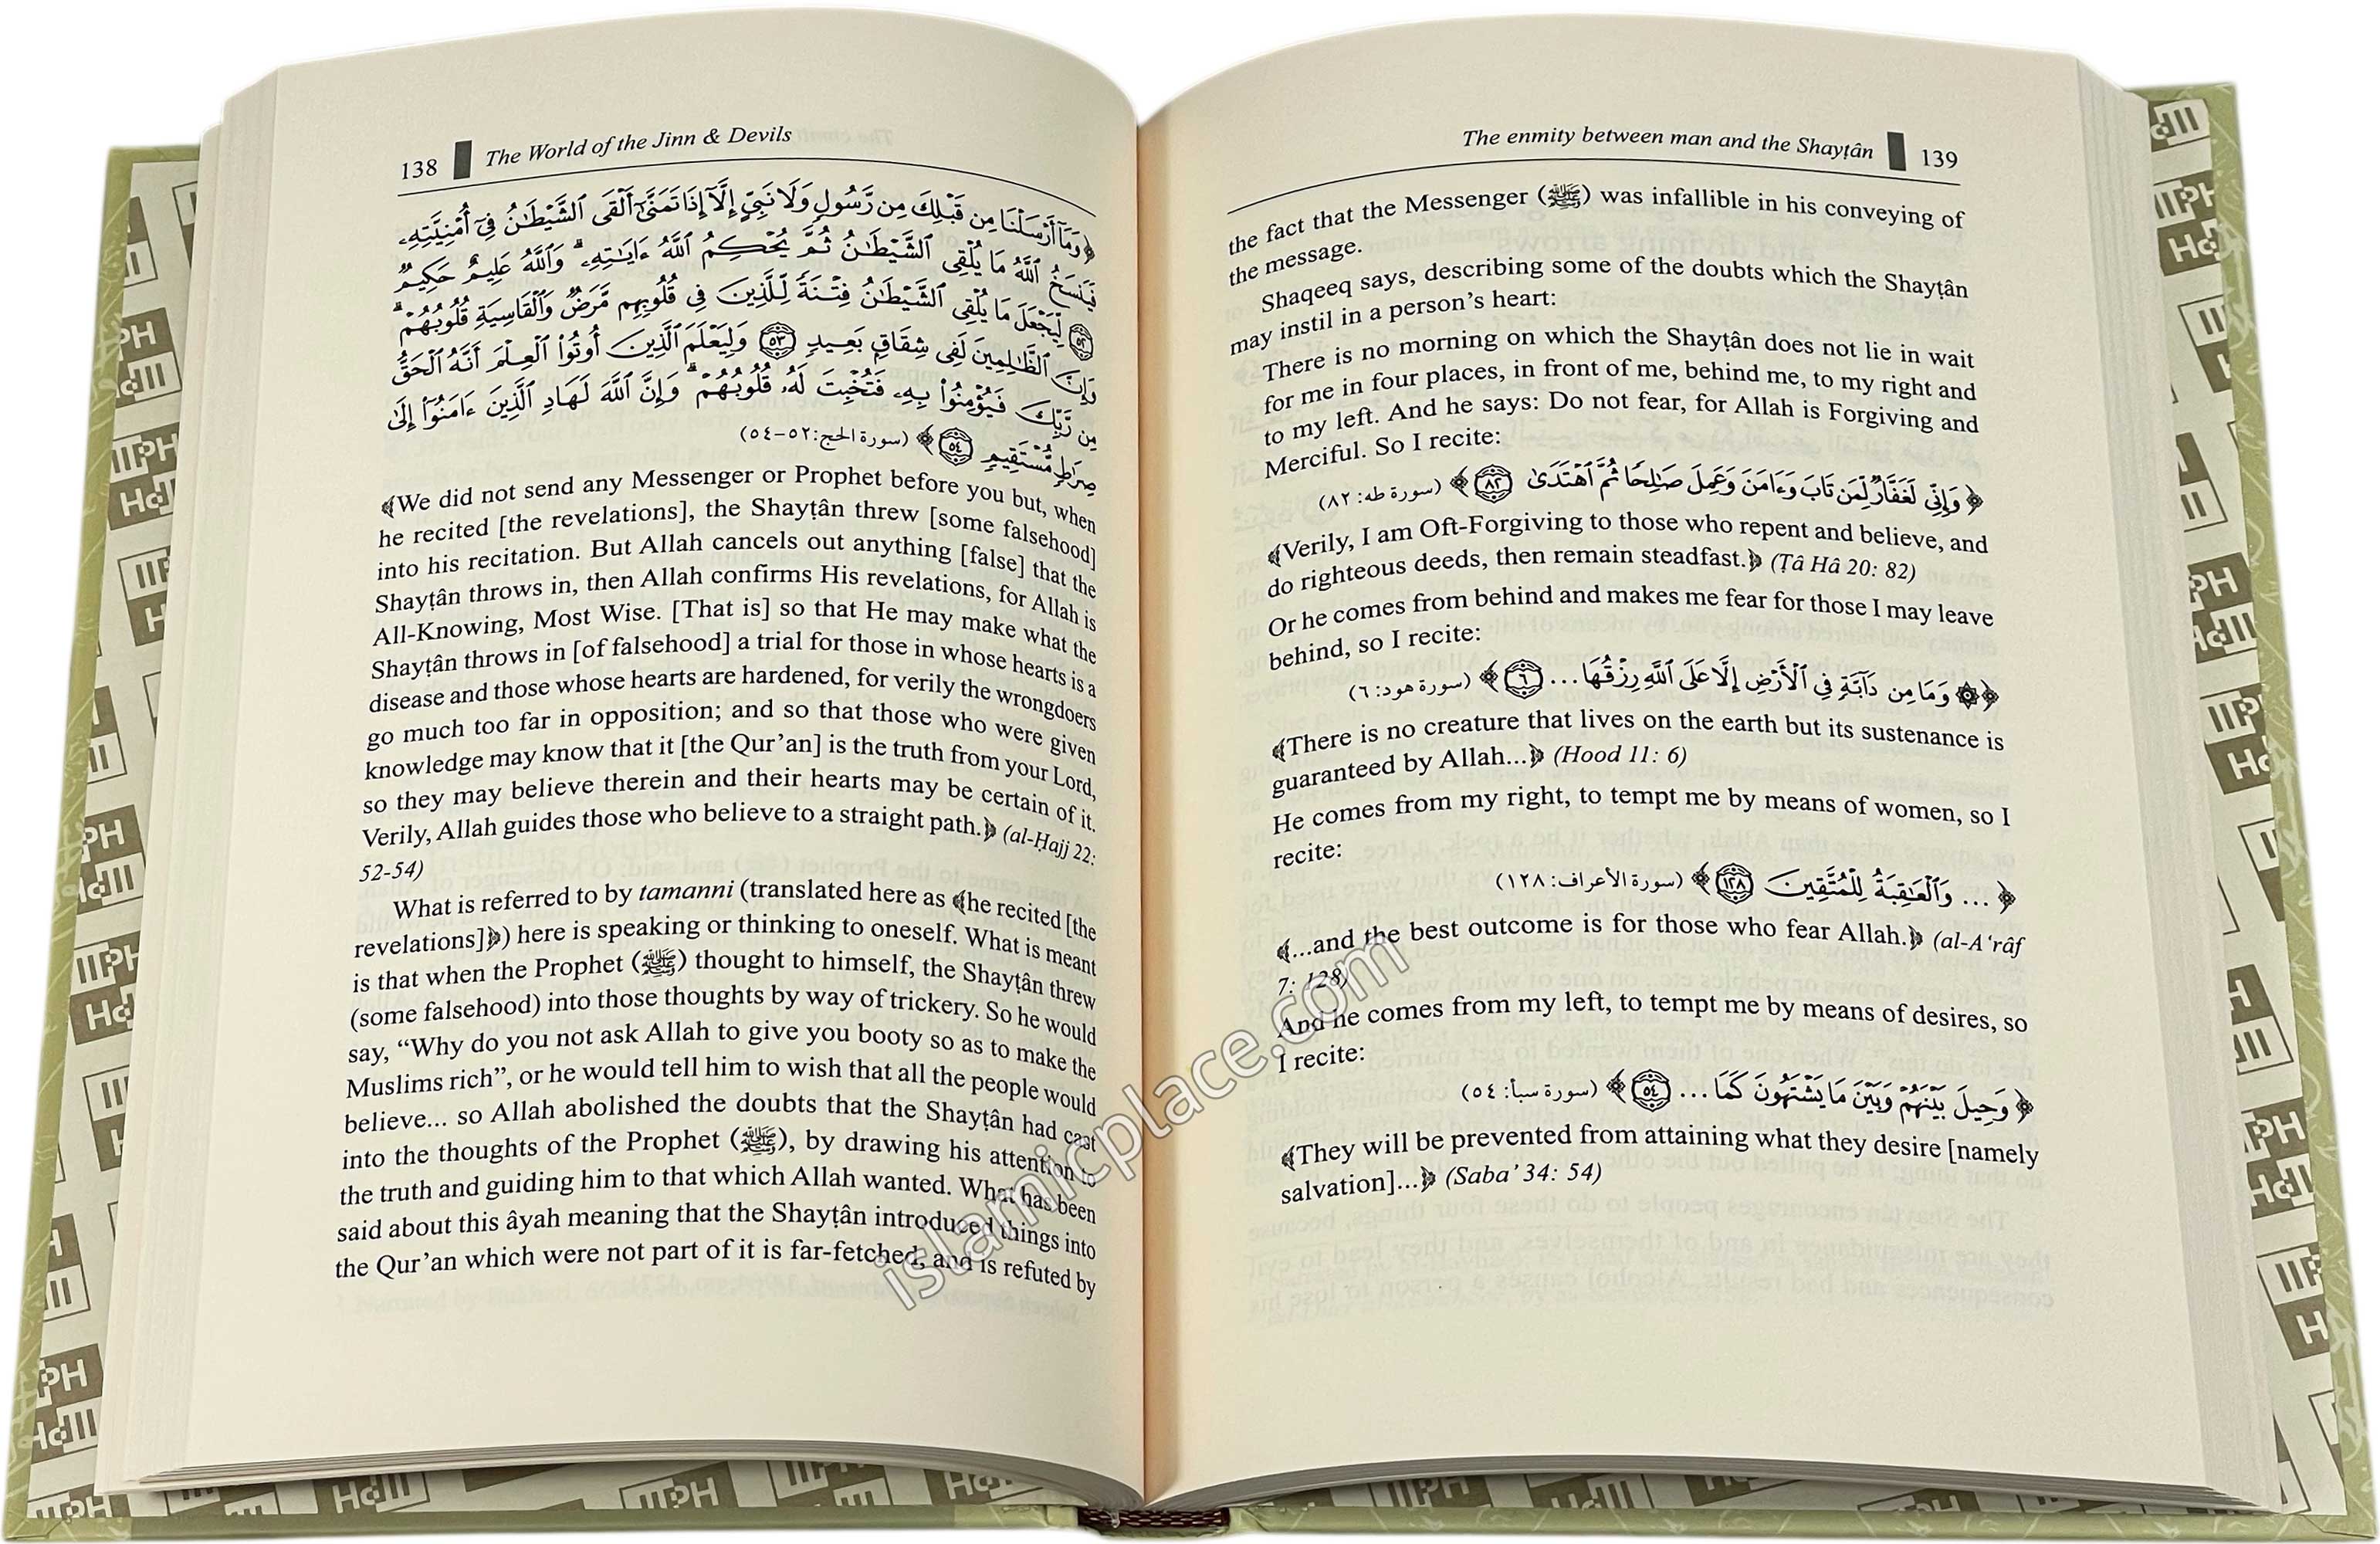 138 The World of the Jinn & Devils
﴿وَمَآ أَرْسَلْنَا مِن قَبْلِكَ مِن رَّسُولٍ وَلَا نَبِىٍّ إِلَّآ إِذَا تَمَنَّىٰٓ أَلْقَى ٱلشَّيْطَـٰنُ فِىٓ أُمْنِيَّتِهِۦ
فَيَنسَخُ ٱللَّهُ مَا يُلْقِى ٱلشَّيْطَـٰنُ ثُمَّ يُحْكِمُ ٱللَّهُ ءَايَـٰتِهِۦ ۗ وَٱللَّهُ عَلِيمٌ حَكِيمٌ
٥٢ لِّيَجْعَلَ مَا يُلْقِى ٱلشَّيْطَـٰنُ فِتْنَةً لِّلَّذِينَ فِى قُلُوبِهِم مَّرَضٌ وَٱلْقَاسِيَةِ قُلُوبُهُمْ ۗ
وَإِنَّ ٱلظَّـٰلِمِينَ لَفِى شِقَاقٍۭ بَعِيدٍ ٥٣ وَلِيَعْلَمَ ٱلَّذِينَ أُوتُوا۟ ٱلْعِلْمَ أَنَّهُ ٱلْحَقُّ
مِن رَّبِّكَ فَيُؤْمِنُوا۟ بِهِۦ فَتُخْبِتَ لَهُۥ قُلُوبُهُمْ ۗ وَإِنَّ ٱللَّهَ لَهَادِ ٱلَّذِينَ ءَامَنُوٓا۟ إِلَىٰ
صِرَٰطٍ مُّسْتَقِيمٍ ٥٤﴾ (سورة الحج: ٥٢-٥٤)
﴾We did not send any Messenger or Prophet before you but, when
he recited [the revelations], the Shayṭân threw [some falsehood]
into his recitation. But Allah cancels out anything [false] that the
Shayṭân throws in, then Allah confirms His revelations, for Allah is
All-Knowing, Most Wise. [That is] so that He may make what the
Shayṭân throws in [of falsehood] a trial for those in whose hearts is a
disease and those whose hearts are hardened, for verily the wrongdoers
go much too far in opposition; and so that those who were given
knowledge may know that it [the Qur’an] is the truth from your Lord,
so they may believe therein and their hearts may be certain of it.
Verily, Allah guides those who believe to a straight path.﴿ (al-Ḥajj 22:
52-54)
What is referred to by tamanni (translated here as ﴾he recited [the
revelations]﴿) here is speaking or thinking to oneself. What is meant
is that when the Prophet (ﷺ) thought to himself, the Shayṭân threw
(some falsehood) into those thoughts by way of trickery. So he would
say, “Why do you not ask Allah to give you booty so as to make the
Muslims rich”, or he would tell him to wish that all the people would
believe... so Allah abolished the doubts that the Shayṭân had cast
into the thoughts of the Prophet (ﷺ), by drawing his attention to
the truth and guiding him to that which Allah wanted. What has been
said about this âyah meaning that the Shayṭân introduced things into
the Qur’an which were not part of it is far-fetched, and is refuted by
The enmity between man and the Shayṭân 139
the fact that the Messenger (ﷺ) was infallible in his conveying of
the message.
Shaqeeq says, describing some of the doubts which the Shayṭân
may instil in a person’s heart:
There is no morning on which the Shayṭân does not lie in wait
for me in four places, in front of me, behind me, to my right and
to my left. And he says: Do not fear, for Allah is Forgiving and
Merciful. So I recite:
﴿وَإِنِّى لَغَفَّارٌ لِّمَن تَابَ وَءَامَنَ وَعَمِلَ صَـٰلِحًا ثُمَّ ٱهْتَدَىٰ ٨٢﴾ (سورة طه: ٨٢)
﴾Verily, I am Oft-Forgiving to those who repent and believe, and
do righteous deeds, then remain steadfast.﴿ (Ṭâ Hâ 20: 82)
Or he comes from behind and makes me fear for those I may leave
behind, so I recite:
﴿۞ وَمَا مِن دَآبَّةٍ فِى ٱلْأَرْضِ إِلَّا عَلَى ٱللَّهِ رِزْقُهَا... ٦﴾ (سورة هود: ٦)
﴾There is no creature that lives on the earth but its sustenance is
guaranteed by Allah...﴿ (Hood 11: 6)
He comes from my right, to tempt me by means of women, so I
recite:
﴿... وَٱلْعَـٰقِبَةُ لِلْمُتَّقِينَ ١٢٨﴾ (سورة الأعراف: ١٢٨)
﴾...and the best outcome is for those who fear Allah.﴿ (al-A‘râf
7: 128)
And he comes from my left, to tempt me by means of desires, so
I recite:
﴿وَحِيلَ بَيْنَهُمْ وَبَيْنَ مَا يَشْتَهُونَ كَمَا... ٥٤﴾ (سورة سبأ: ٥٤)
﴾They will be prevented from attaining what they desire [namely
salvation]...﴿ (Saba’ 34: 54)
islamicplace.com
IIPH